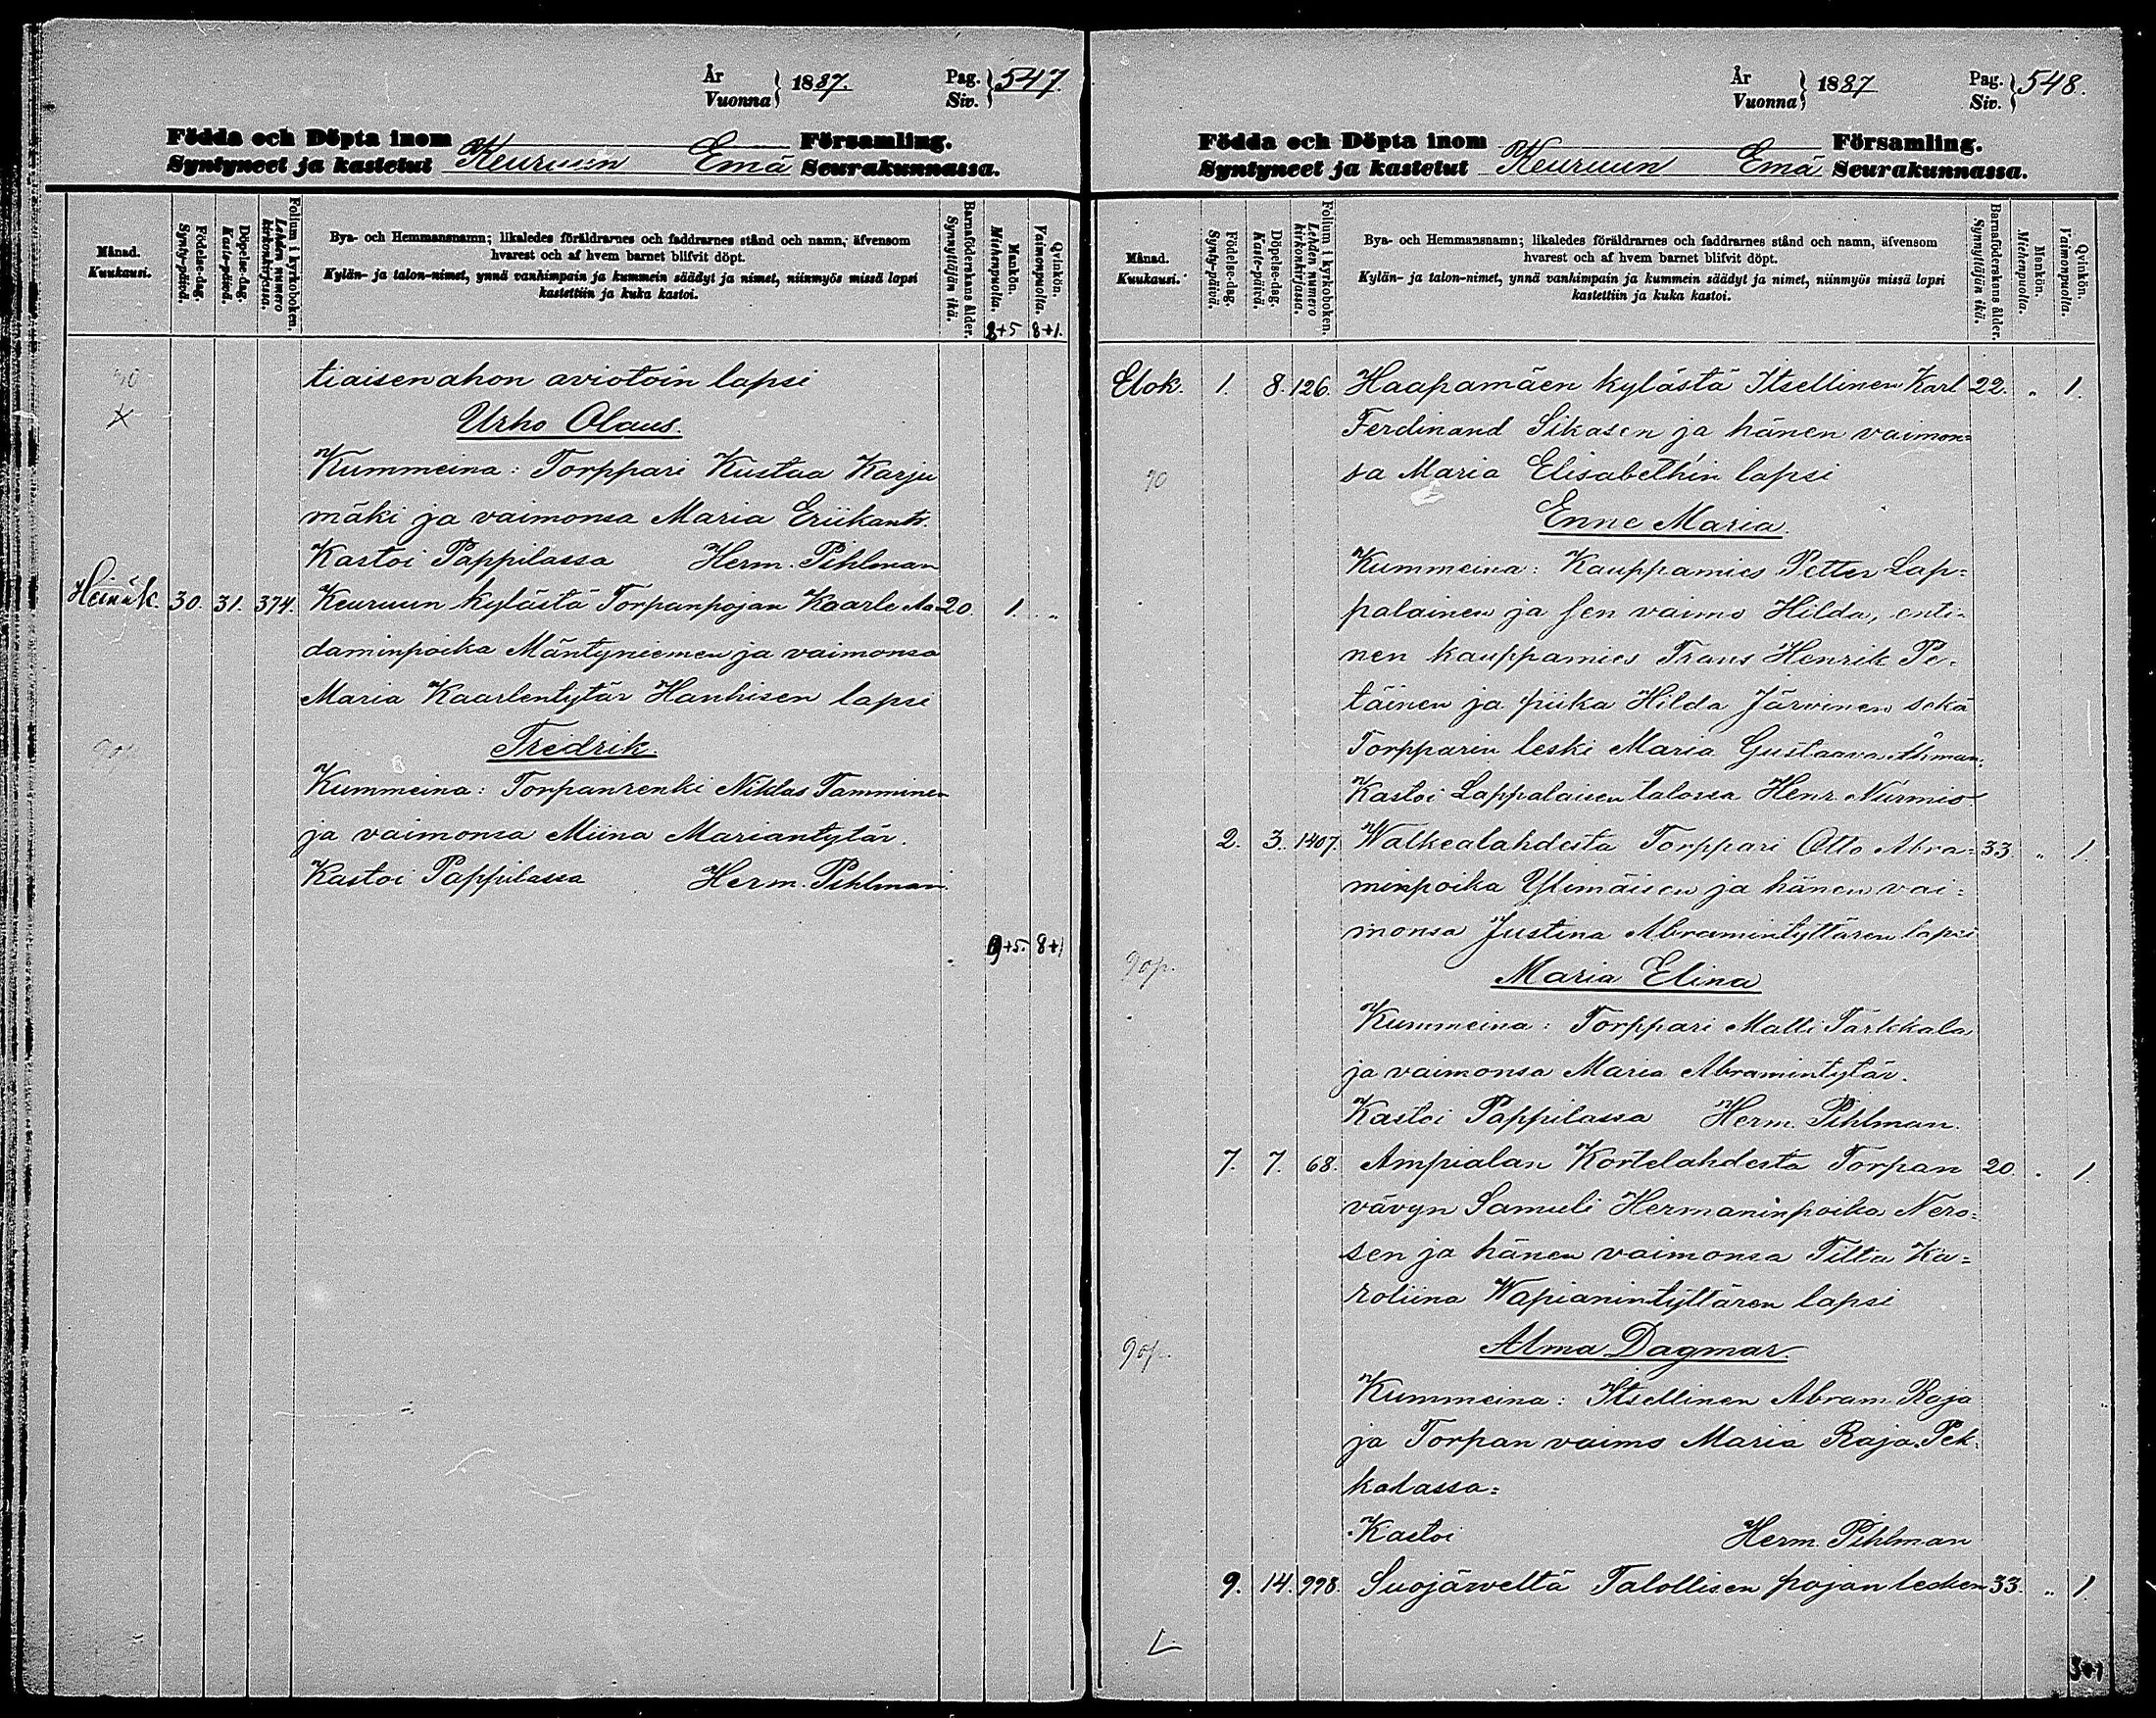 År
Vuonna } 1887.
Pag.
Siv. } 547.
Födda och Döpta inom Församling.
Syntyneet ja kastetut Keuruun Emä Seurakunnassa.
Månad.
Kuukausi.
Födelse-dag.
Synty-päivä.
Döpelse-dag.
Kaste-päivä.
Folium i kyrkoboken.
Lehden numero
kirkonkirjassa.
Bya- och Hemmansnamn; likaledes föräldrarnes och faddrarnes stånd och namn, äfvensom
hvarest och af hvem barnet blifvit döpt.
Kylän- ja talon-nimet, ynnä vanhimpain ja kummein säädyt ja nimet, niinmyös missä lapsi
kastettiin ja kuka kastoi.
Barnaföderskans ålder.
Synnyttäjän ikä.
Mankön.
Miehenpuolta.
Qvinkön.
Vaimonpuolta.
8+5 8+1.
tiaisenahon aviotoin lapsi
Urho Olaus.
Kummeina: Torppari Kustaa Karju
mäki ja vaimonsa Maria Eriikantr.
Kastoi Pappilassa Herm. Pihlman
Heinäk. 30. 31. 374. Keuruun kylästä Torpanpojan Kaarle Aa- 20. 1. "
daminpoika Mäntyniemen ja vaimonsa
Maria Kaarlentytär Hanhisen lapsi
Fredrik.
Kummeina: Torpanrenki Niklas Tamminen
ja vaimonsa Miina Mariantytär.
Kastoi Pappilassa Herm. Pihlman.
9+5. 8+1
År
Vuonna } 1887
Pag.
Siv. } 548.
Födda och Döpta inom Församling.
Syntyneet ja kastetut Keuruun Emä Seurakunnassa.
Månad.
Kuukausi.
Födelse-dag.
Synty-päivä.
Döpelse-dag.
Kaste-päivä.
Folium i kyrkoboken.
Lehden numero
kirkonkirjassa.
Bya- och Hemmansnamn; likaledes föräldrarnes och faddrarnes stånd och namn, äfvensom
hvarest och af hvem barnet blifvit döpt.
Kylän- ja talon-nimet, ynnä vanhimpain ja kummein säädyt ja nimet, niinmyös missä lapsi
kastettiin ja kuka kastoi.
Barnaföderskans ålder.
Synnyttäjän ikä.
Menkön.
Miehenpuolta.
Qvinkön.
Vaimonpuolta.
Elok. 1. 8. 126. Haapamäen kylästä Itsellinen Karl 22. " 1.
Ferdinand Sikasen ja hänen vaimon=
sa Maria Elisabethin lapsi
Enne Maria.
Kummeina: Kauppamies Petter Lap=
palainen ja sen vaimo Hilda, enti=
nen kauppamies Frans Henrik Pe=
täinen ja piika Hilda Järvinen sekä
Torpparin leski Maria Gustaava Åhman.
Kastoi Lappalaisen talossa Henr. Nurmio
2. 3. 1407. Walkealahdesta Torppari Otto Abra= 33. " 1.
minpoika Ylimäisen ja hänen vai=
monsa Justina Abramintyttären lapsi
90p. Maria Elina
Kummeina: Torppari Matti Tarkkala
ja vaimonsa Maria Abramintytär.
Kastoi Pappilassa Herm. Pihlman.
7. 7. 68. Ampialan Kortelahdesta Torpan 20. " 1.
vävyn Samuli Hermaninpoika Nero=
sen ja hänen vaimonsa Tilta Ka=
roliina Wapianintyttären lapsi
90p. Alma Dagmar.
Kummeina: Itsellinen Abram Raja
ja Torpan vaimo Maria Raja. Pek=
kalassa=
Kastoi Herm. Pihlman
9. 14. 998. Suojärveltä Talollisen pojan lesken 33. " 1.